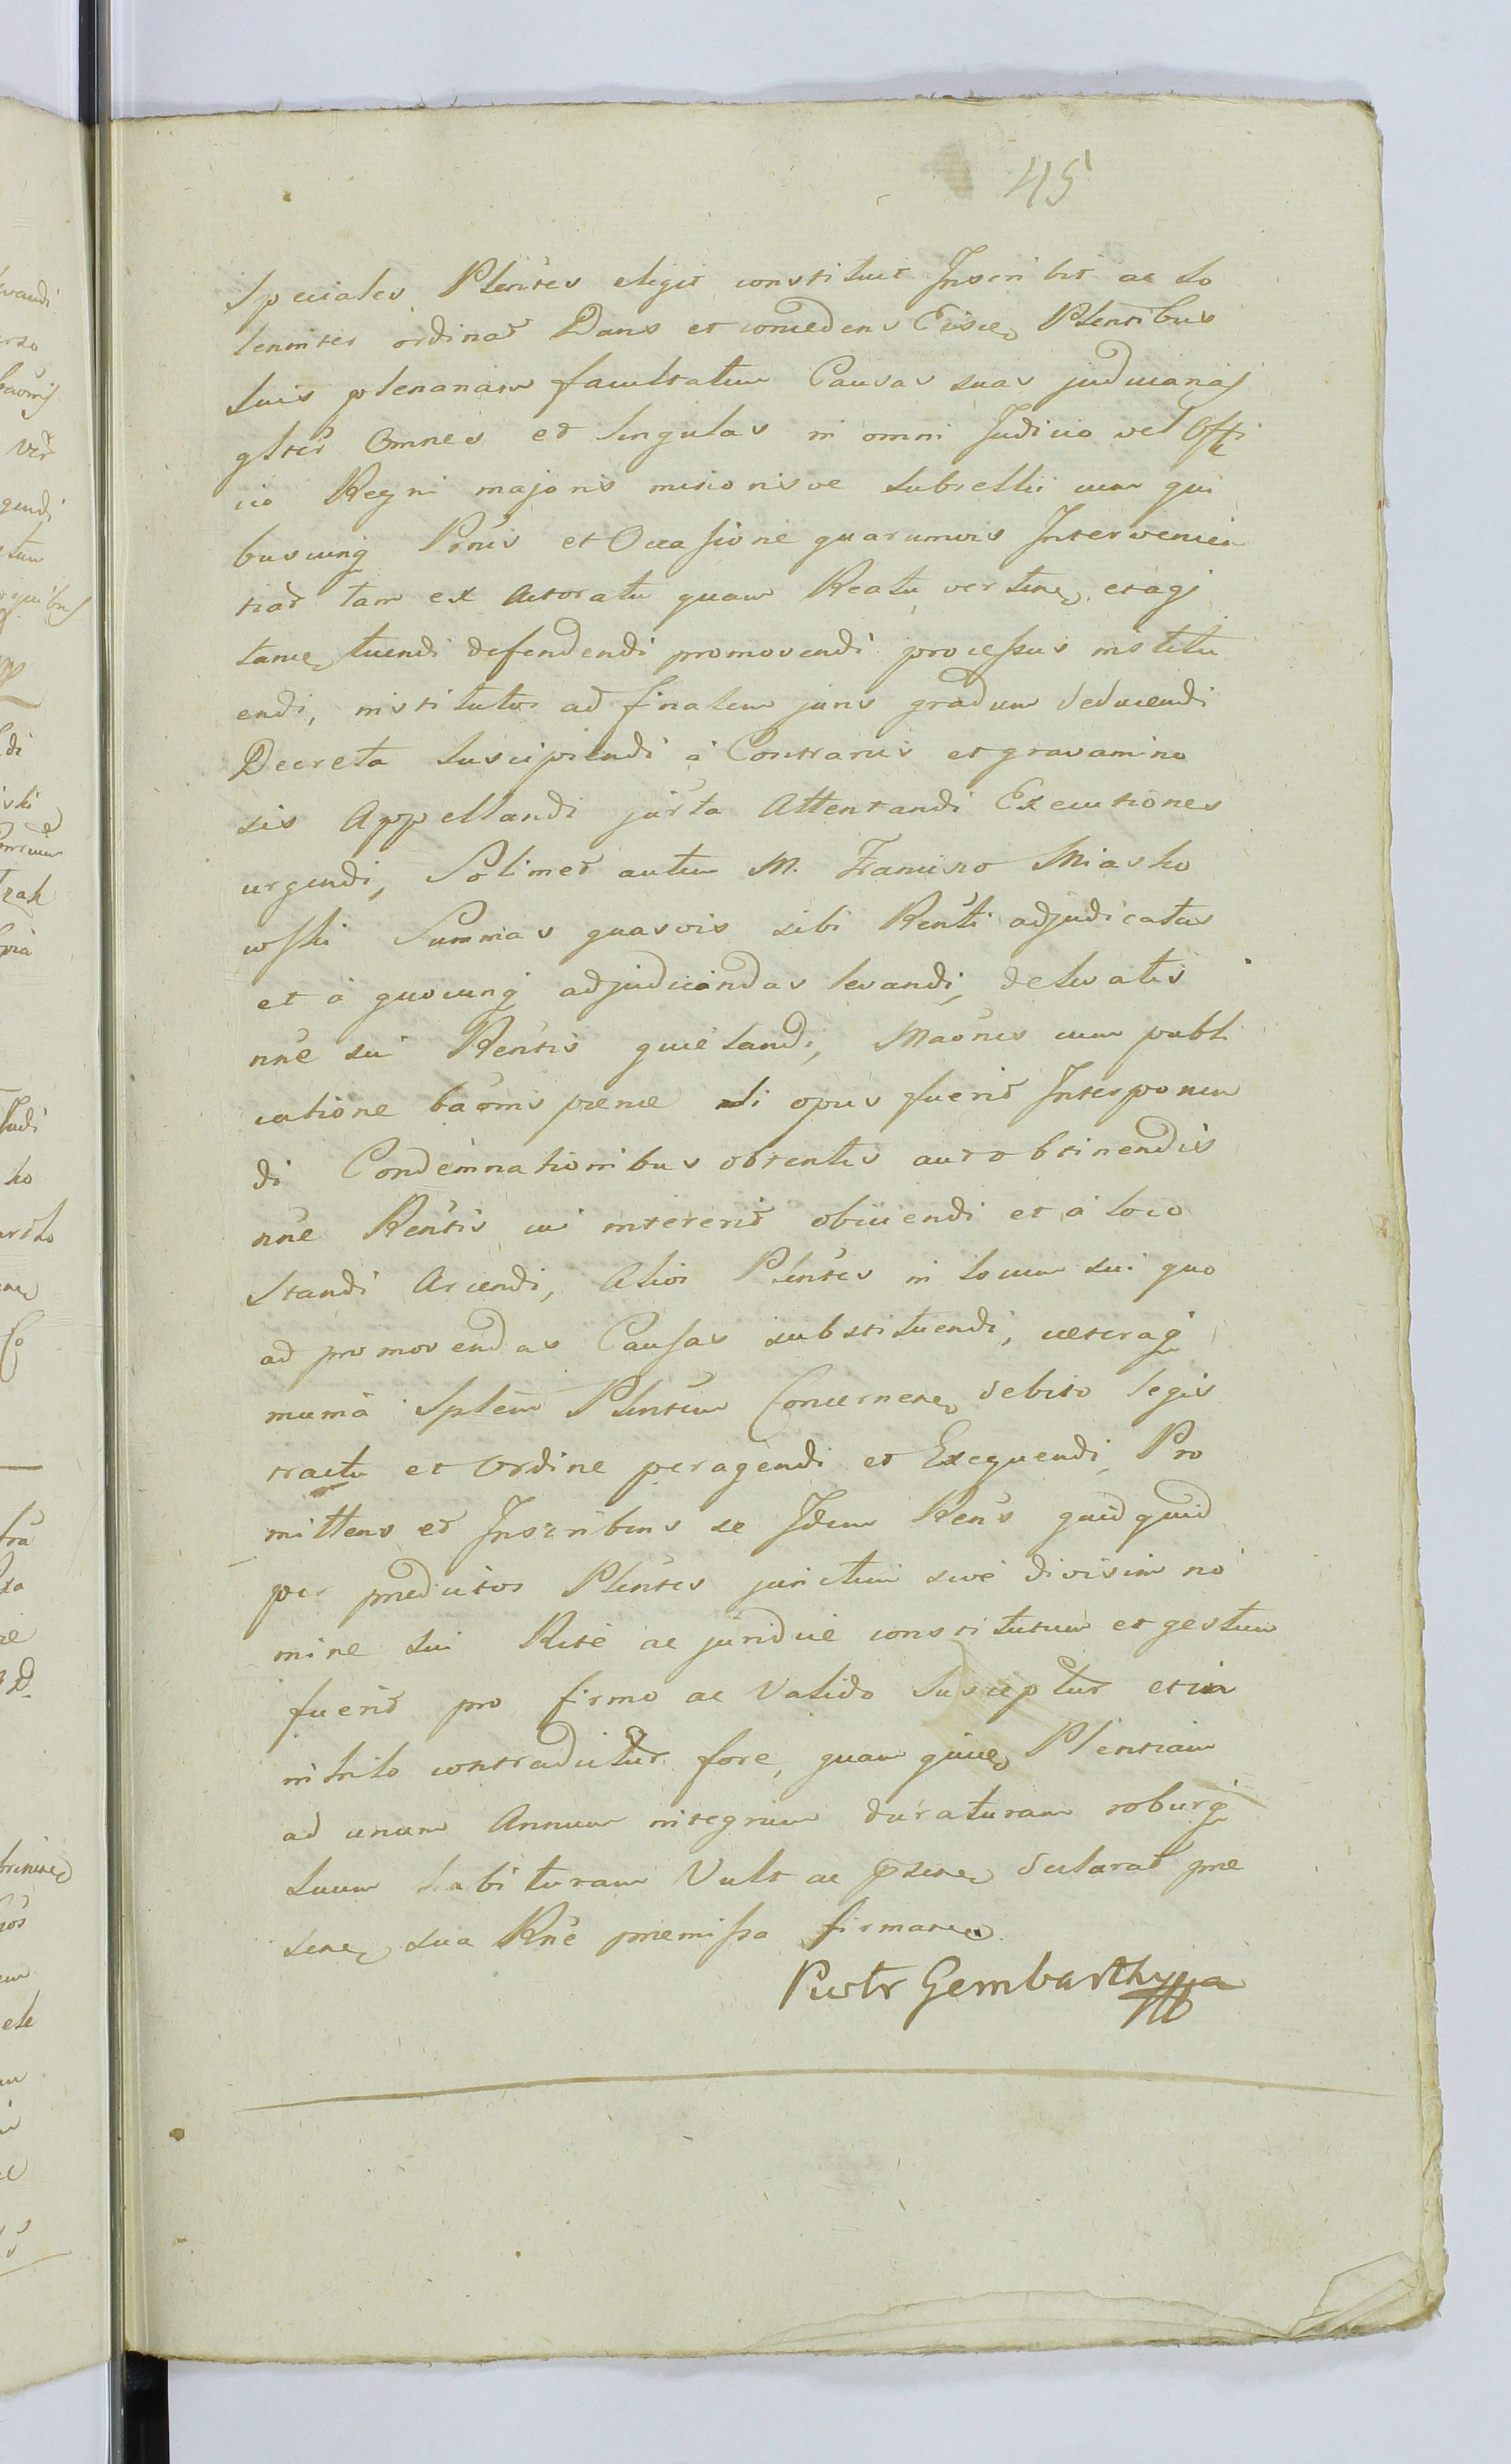 45
Speciales Plentes eligit constituit Inscribit ac So
lenniter ordinat Dans et concedens Eisce Plentibus
Suis plenariam facultatem Causas suas judiciarias
glter Omnes et Singulas in omni Judicio vel Offi
cio Regni majoris minorisve Subsellii cum qui
buscunq Prnis et Occasione quarumvis Intervenien
tiar tam ex Actoratu quam Reatu verten et agi
tan tuendi defendendi promovendi processus institu
endi, institutos ad finalem juris gradum deducendi
Decreta Suscipiendi a Contrariis et gravamino
sis Appellandi juxta Attentandi Executiones
urgendi, Solimet autem M. Francisco Miasko
wski Summas quasvis sibi Renti adjudicatas
et a quocunq adjudicandas levandi, de levatis
nne sui Rentis quietandi, Maones cum publi
catione baoms poenae si opus fuerit Interponen
di Condemnationibus obtentis aut obtinendis
nne Rentis cui intererit obiiciendi et a loco
Standi Arcendi, Alios Plentes in locum sui quo
ad promovendas Causas substituendi, caeteraq
munia Splem Plentem Concernen debito legis
tractu et Ordine peragendi et Exequendi, Pro
mittens et Inscribens se Idem Rens quidquid
per praedictos Plentes junctim sive divisim no
mine sui Rite ac juridice constitutum et gestum
fuerit pro firmo ac Valido Susceptur et in
nihilo contradictur fore, quam quidem Plentiam
ad unum Annum integrum duraturam roburq
suum habituram Vult ac declarat prae
sen sua Rne praemissa firman
Piotr Gembarthy